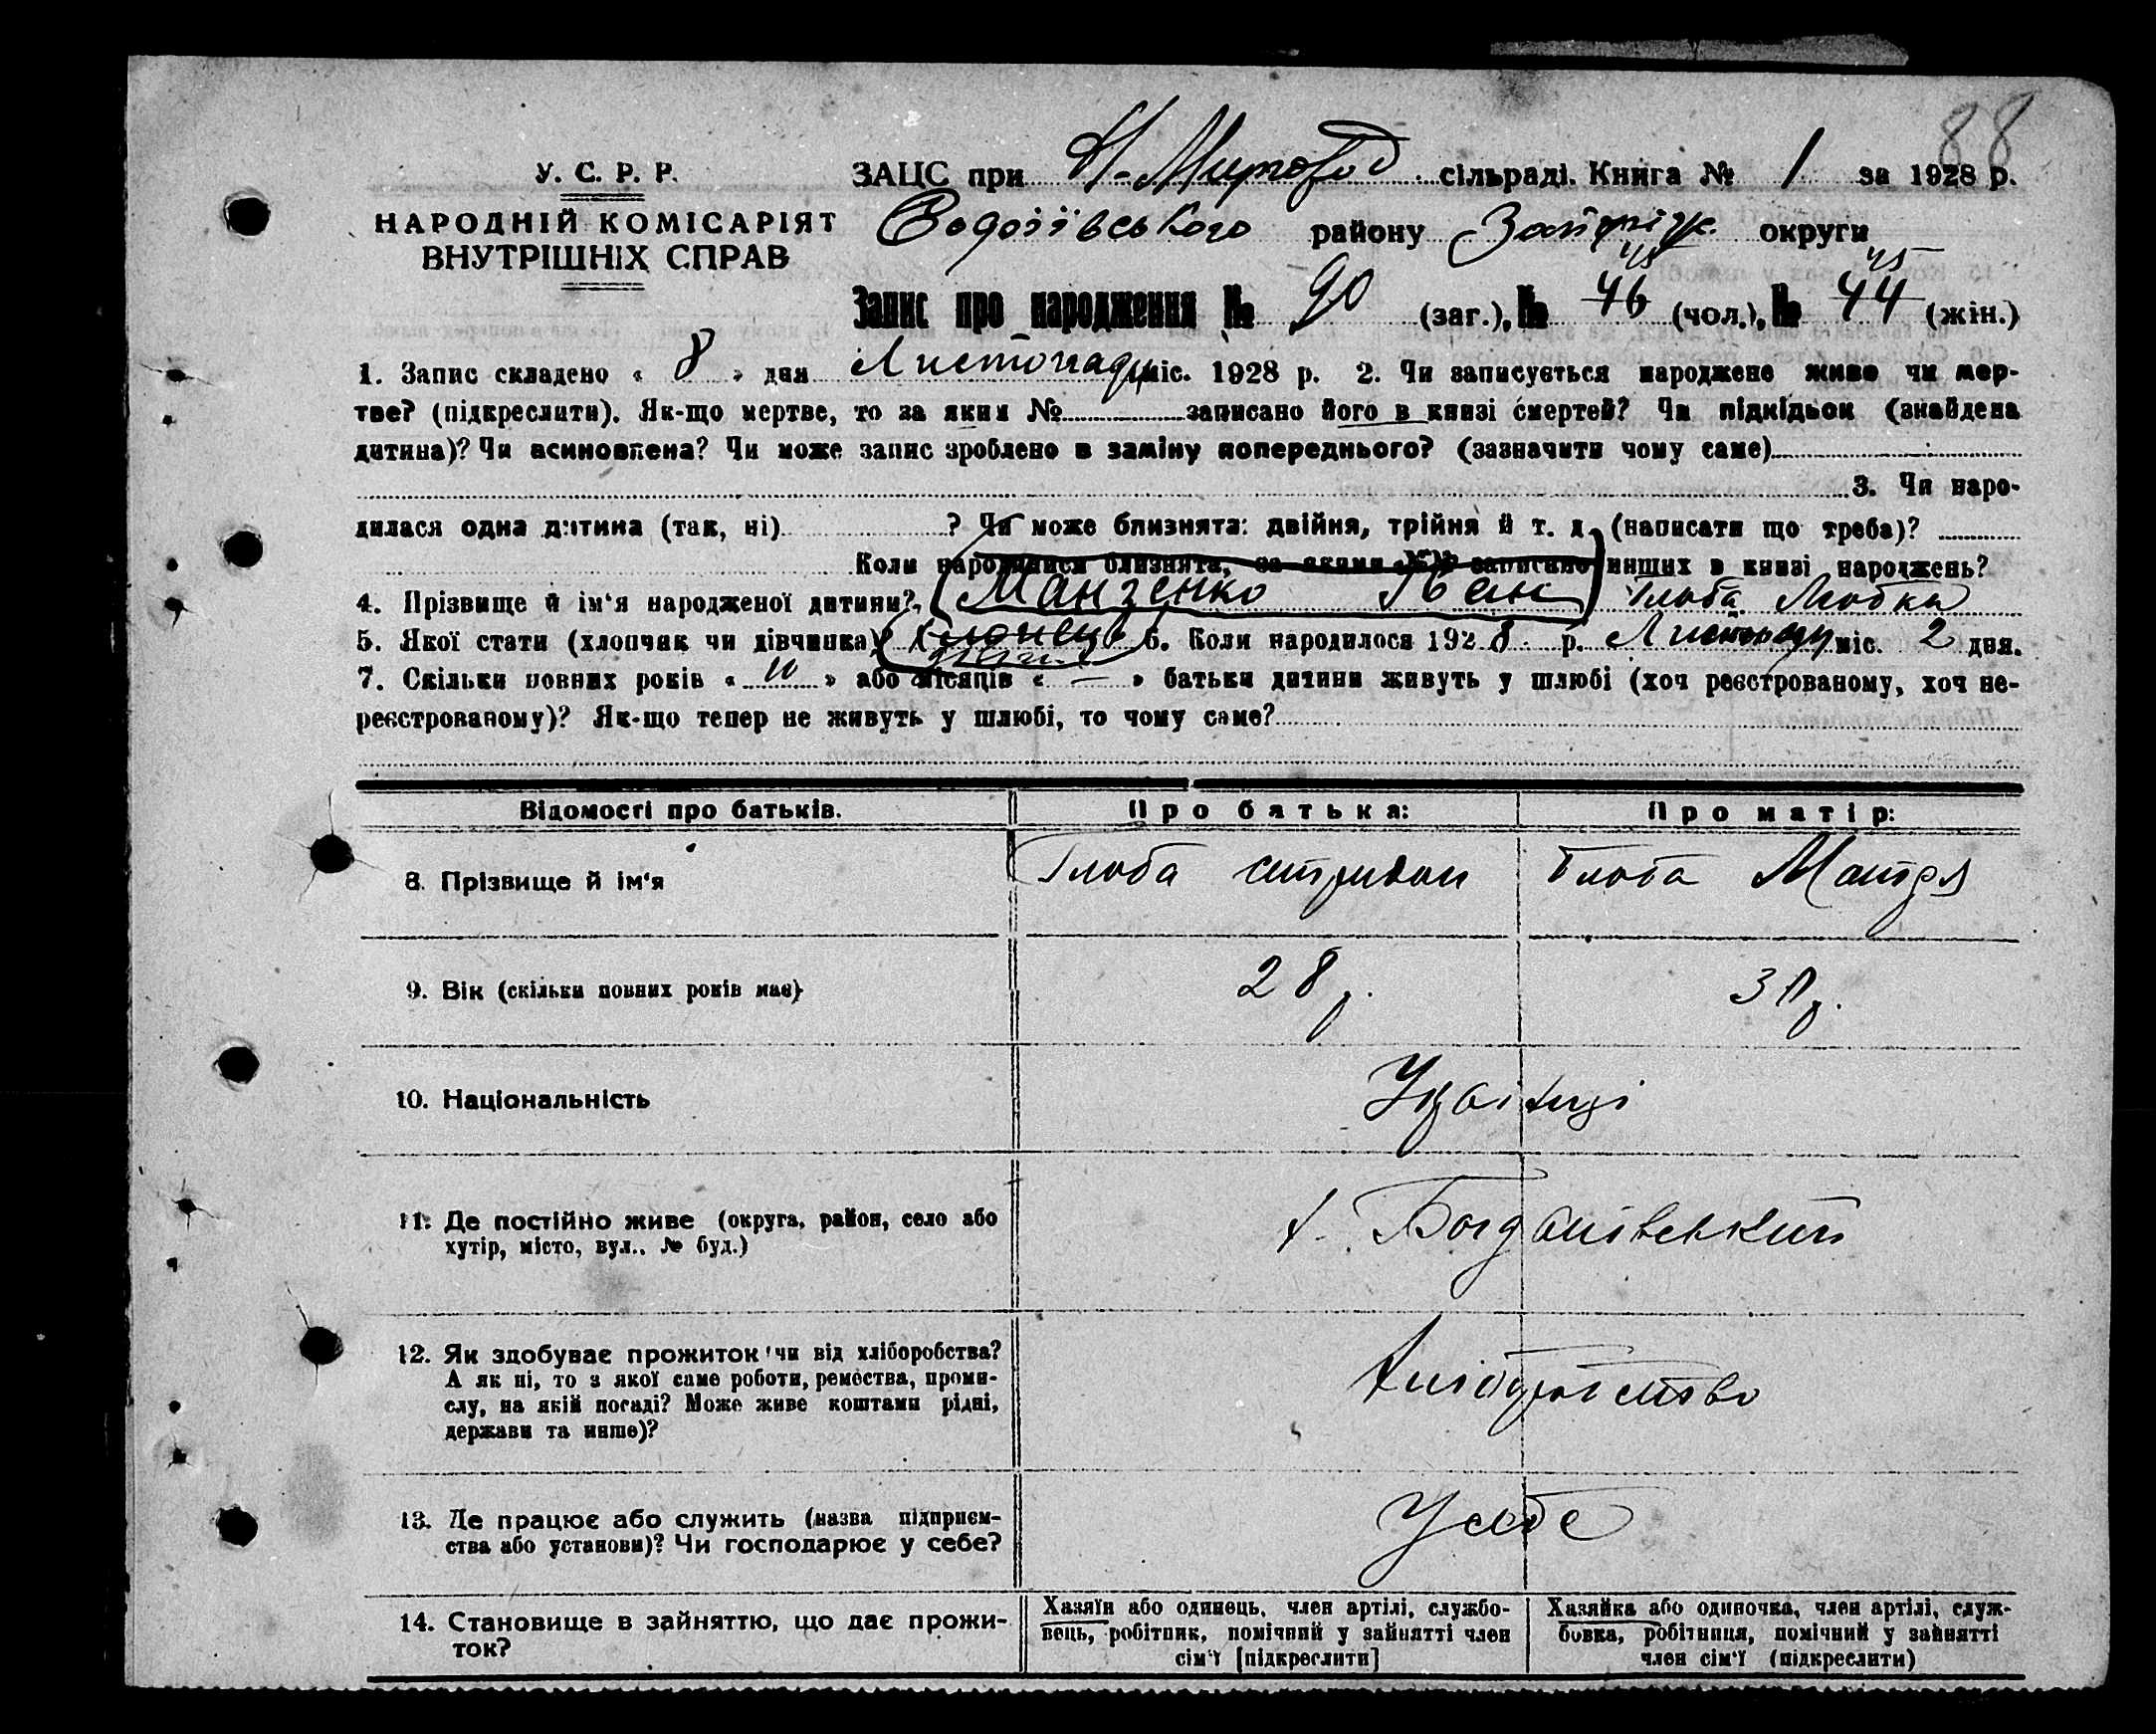 88
У. С. Р. Р.
НАРОДНІЙ КОМІСАРІЯТ
ВНУТРІШНІХ СПРАВ
ЗАЦС при Н-Миров сільраді. Книга № 1 за 1928 р.
району Запоріж. округи
45 45
Запис про народження № 90 (заг.), № 46 (чол.), № 44 (жін.)
1. Запис складено « 8 » дня Листопаду міс. 1928 р. 2. Чи записується народжене живе чи мер-
тве? (підкреслити). Як-що мертве, то за яким № записано його в книзі смертей? Чи підкідьок (знайдена
дитина)? Чи всиновлена? Чи може запис зроблено в заміну попереднього? (зазначити чому саме)
3. Чи наро-
дилася одна дитина (так, ні) ? Чи може близнята: двійня, трійня й т. д. (написати що треба)?
Коли народилися близнята, за якими №№ записано инших в книзі народжень?
4. Прізвище й ім'я народженої дитини? Манзенко Іван Глоба Любка
5. Якої стати (хлопчик чи дівчинка)? 6. Коли народилося 1928 р. Листопаду міс. 2 дня.
7. Скільки повних років « 10 » або місяців « — » батьки дитини живуть у шлюбі (хоч реєстрованому, хоч не-
реєстрованому)? Як-що тепер не живуть у шлюбі, то чому саме?
Відомості про батьків. Про батька: Про матір:
8. Прізвище й ім'я Глоба Спиридон Глоба Мотря
9. Вік (скільки повних років має) 28 р. 30 р.
10. Національність Українці
11. Де постійно живе (округа, район, село або
хутір, місто, вул., № буд.)
х. Богданівський
12. Як здобуває прожиток (чи від хліборобства?
А як ні, то з якої саме роботи, ремества, проми-
слу, на якій посаді? Може живе коштами рідні,
держави та инше)?
Хліборобство
13. Де працює або служить (назва підприєм-
ства або установи)? Чи господарює у себе?
У себе
14. Становище в зайняттю, що дає прожи-
ток?
Хазяїн або одинець, член артілі, службо-
вець, робітник, помічний у зайнятті член
сім'ї [підкреслити]
Хазяйка або одиночка, член артілі, служ-
бовка, робітниця, помічний у зайнятті
член сім'ї (підкреслити)